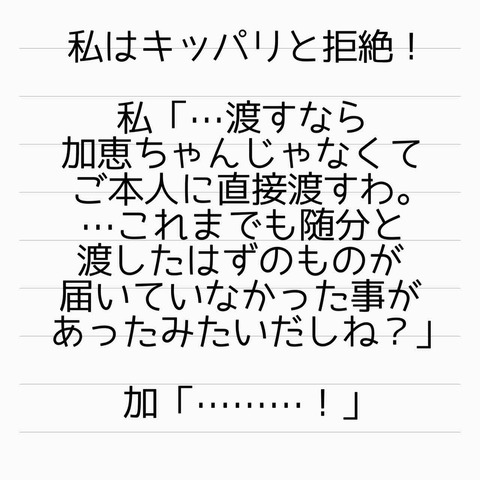 私はキッパリと拒絶！
私「…渡すなら
加恵ちゃんじゃなくて
ご本人に直接渡すわ。
…これまでも随分と
渡したはずのものが
届いていなかった事が
あったみたいだしね？」
加「………！」